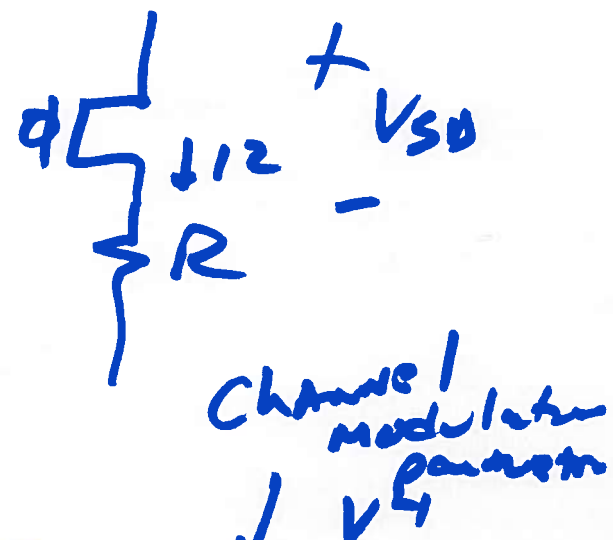 +
VSD
↓ I2
-
R
Channel
Modulation
parameter
V4